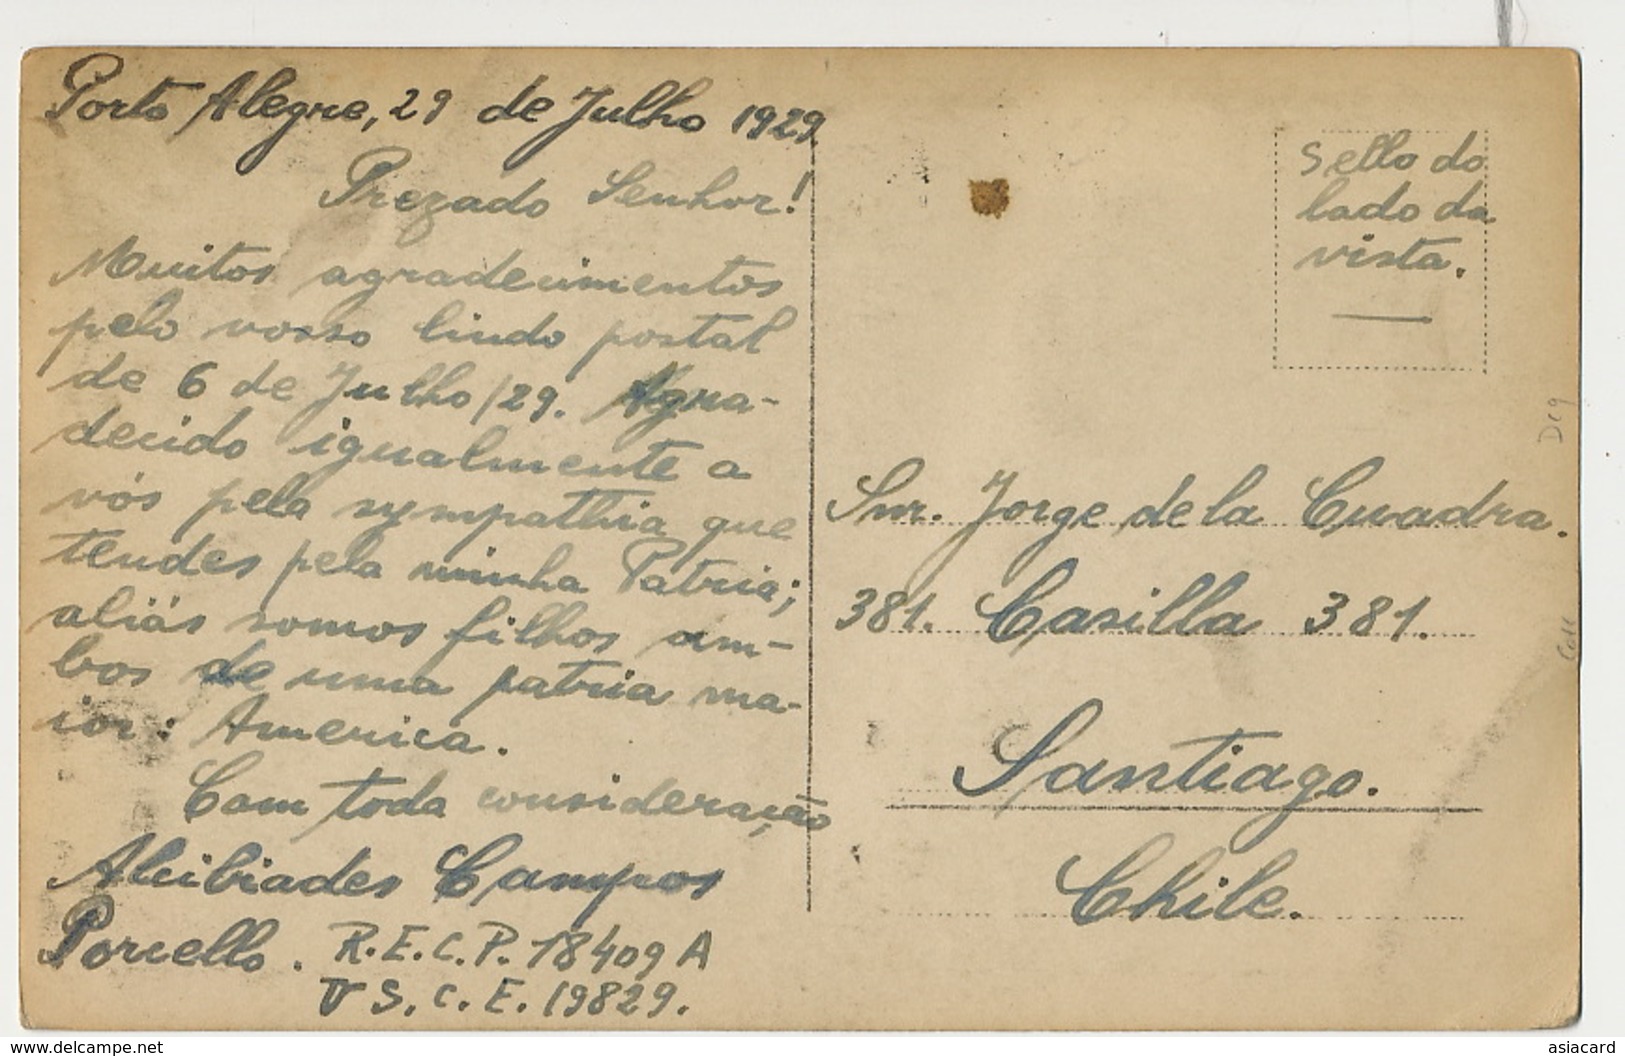 Porto Alegre, 29 de Julho 1929
Prezado Senhor!
Muitos agradecimentos
pelo vosso lindo postal
de 6 de Julho/29. Agra-
decido igualmente a
vós pela sympathia que
tendes pela minha Patria;
aliás somos filhos am-
bos de uma patria ma-
ior: America.
Com toda consideração
Alcibiades Campos
Porcello. R.E.C.P. 18409 A
U S.C.E. 19829.
Sello do
lado da
vista.
Snr. Jorge de la Cuadra.
381. Casilla 381.
Santiago.
Chile.
www.delcampe.net
asiacard